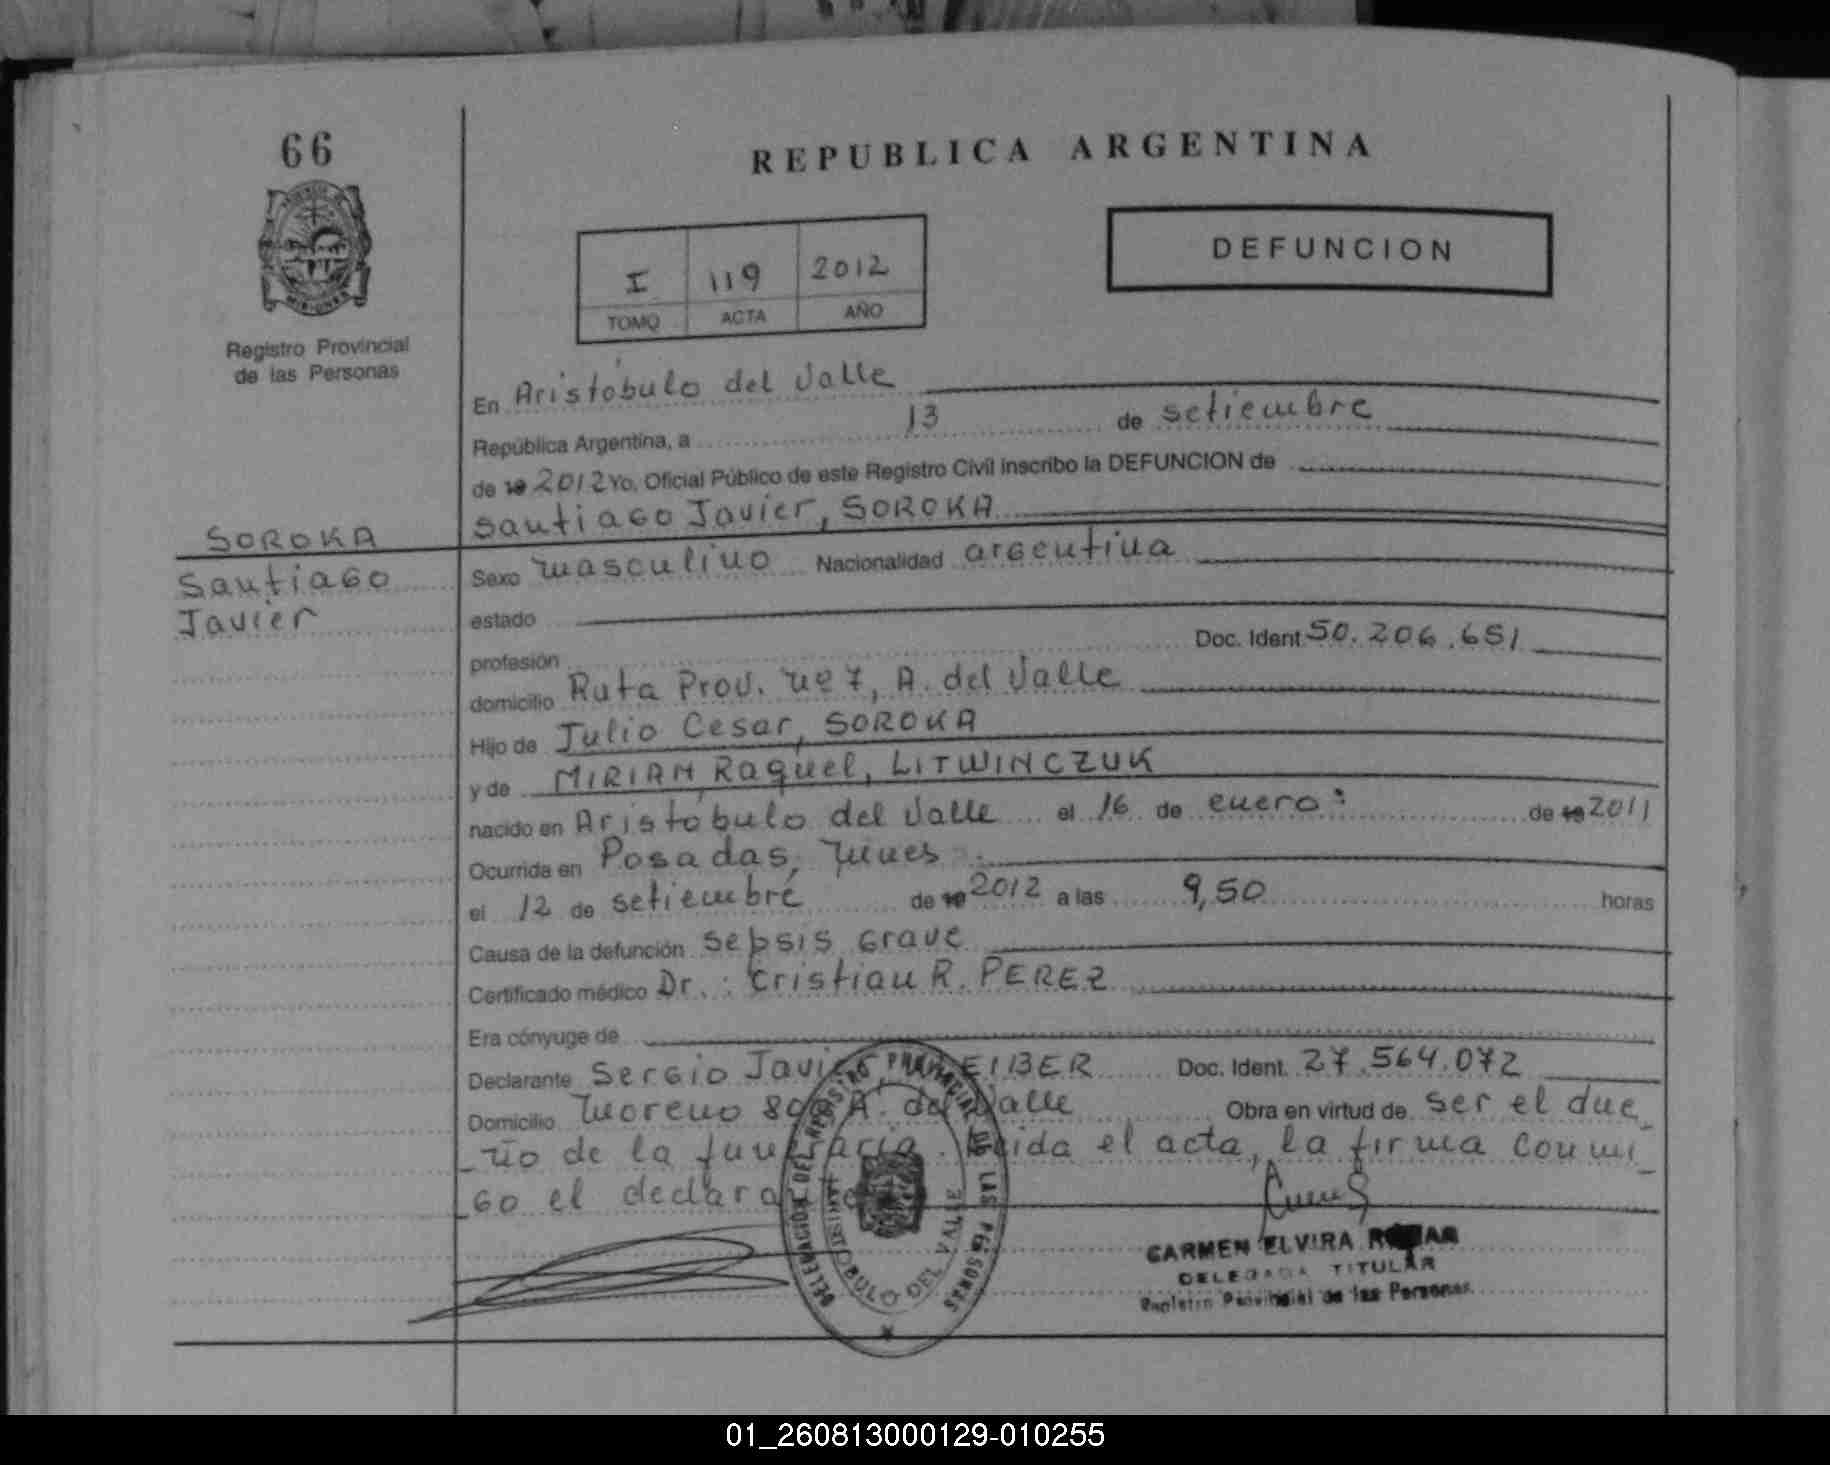 66
REPUBLICA ARGENTINA
DEFUNCION
I 119 2012
TOMO ACTA AÑO
Registro Provincial
de las Personas
En Aristóbulo del Valle
República Argentina, a 13 de setiembre
de 19 2012 Yo, Oficial Público de este Registro Civil inscribo la DEFUNCION de
Santiago Javier, SOROKA
SOROKA
Santiago
Javier
Sexo masculino Nacionalidad argentina
estado
profesión Doc. Ident. 50.206.651
domicilio Ruta Prov. nº 7, A. del Valle
Hijo de Julio Cesar, SOROKA
y de MIRIAM Raquel, LITWINCZUK
nacido en Aristóbulo del Valle el 16 de enero: de 19 2011
Ocurrida en Posadas, Mnes
el 12 de setiembre de 19 2012 a las 9,50 horas
Causa de la defunción sepsis grave
Certificado médico Dr.: Cristian R. PEREZ
Era cónyuge de
Declarante Sergio Javier Doc. Ident. 27.564.072
Domicilio Moreno A. del Valle Obra en virtud de ser el due_
_ño de la funeraria. Leida el acta, la firma conmi_
_go el declarante
DELEGACION DEL REGISTRO PROVINCIAL DE LAS PERSONAS
ARISTOBULO DEL VALLE
CARMEN ELVIRA
DELEGADA TITULAR
Registro Provincial de las Personas
01_260813000129-010255